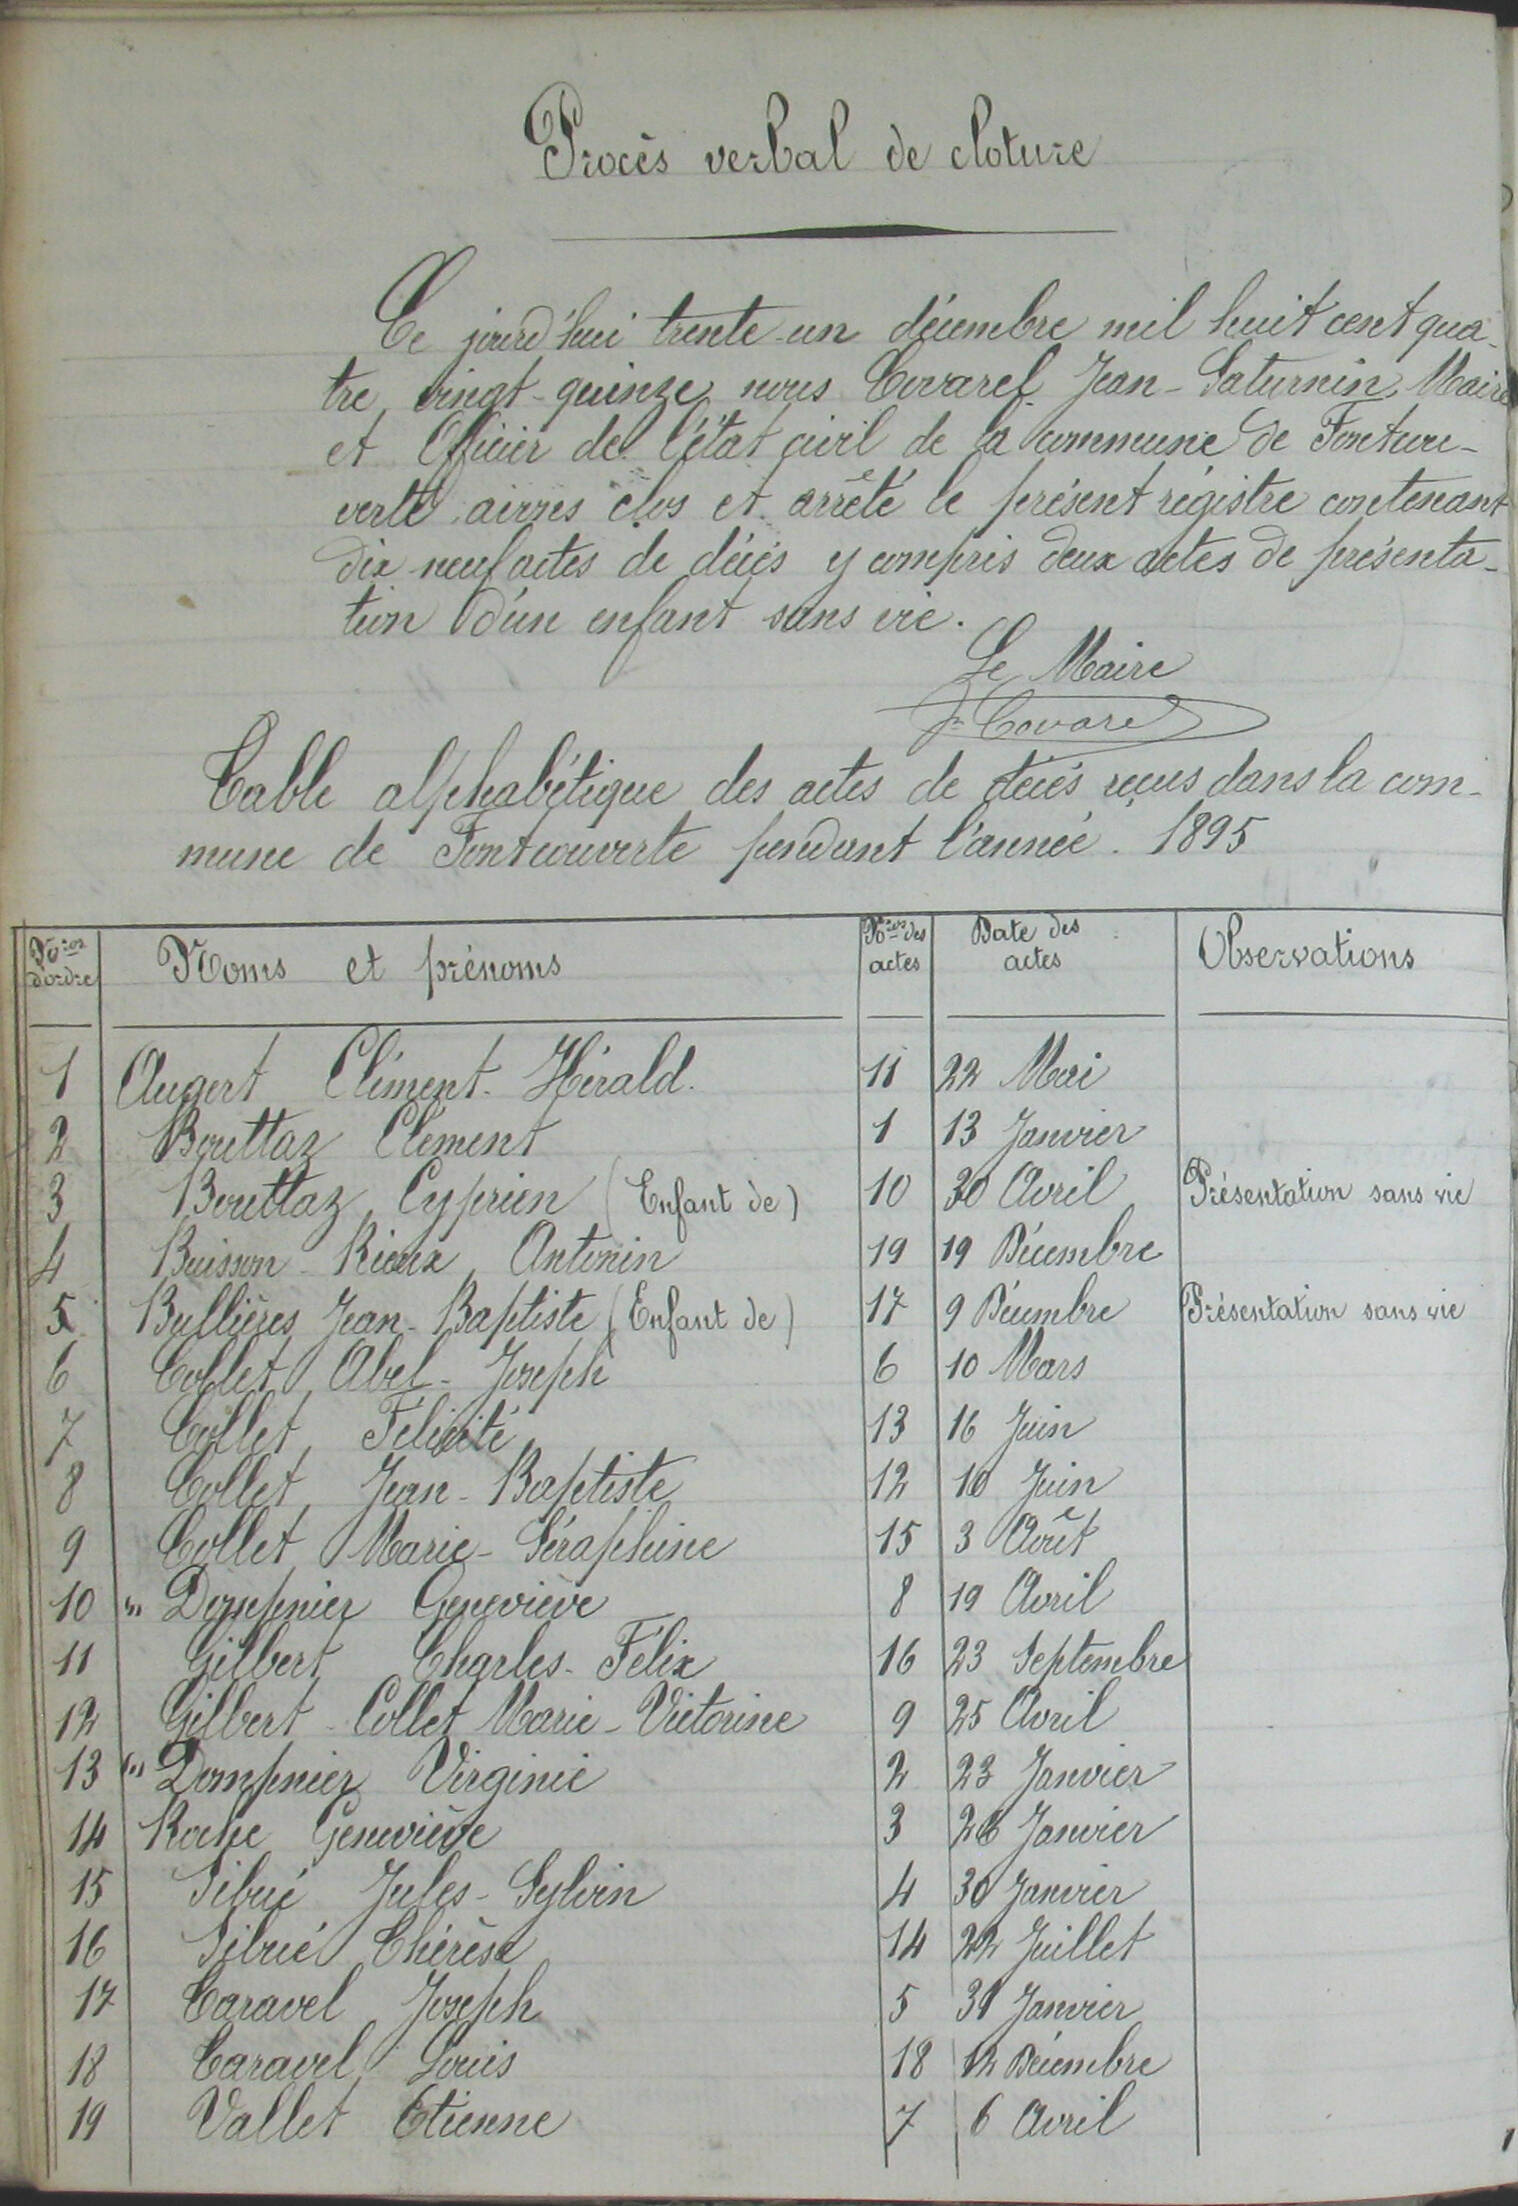 Procès verbal de cloture
Ce jourd'hui trente-un décembre mil huit cent qua-
tre vingt-quinze nous Covarel Jean-Saturnin, Maire
et Officier de l'état civil de la commune de Fontcou-
verte avons clos et arrêté le présent régistre contenant
dix neuf actes de décès y compris deux actes de présenta-
tion d'un enfant sans vie.
Le Maire
Jn Covarel
Table alphabétique des actes de décès reçus dans la com-
mune de Fontcouverte pendant l'année. 1895
Nos d'ordre Noms et prénoms Nos des actes Date des actes Observations
1 Augert Clément-Hérald. 11 22 Mai
2 Bouttaz Clément 1 13 Janvier
3 Bouttaz Cyprien (Enfant de) 10 30 Avril Présentation sans vie
4 Buisson-Rieux Antonin 19 19 Décembre
5 Bullières Jean-Baptiste (Enfant de) 17 9 Décembre Présentation sans vie
6 Collet Abel-Joseph 6 10 Mars
7 Collet Félicité 13 16 Juin
8 Collet Jean-Baptiste 12 10 Juin
9 Collet Marie-Séraphine 15 3 Août
10 " Dompnier Geneviève 8 19 Avril
11 Gilbert Charles-Félix 16 23 Septembre
12 Gilbert-Collet Marie-Victorine 9 25 Avril
13 " Dompnier Virginie 2 23 Janvier
14 Roche Geneviève 3 26 Janvier
15 Sibué Jules-Sylvin 4 30 Janvier
16 Sibué Thérèse 14 22 Juillet
17 Taravel Joseph 5 31 Janvier
18 Taravel Louis 18 12 Décembre
19 Vallet Etienne 7 6 Avril